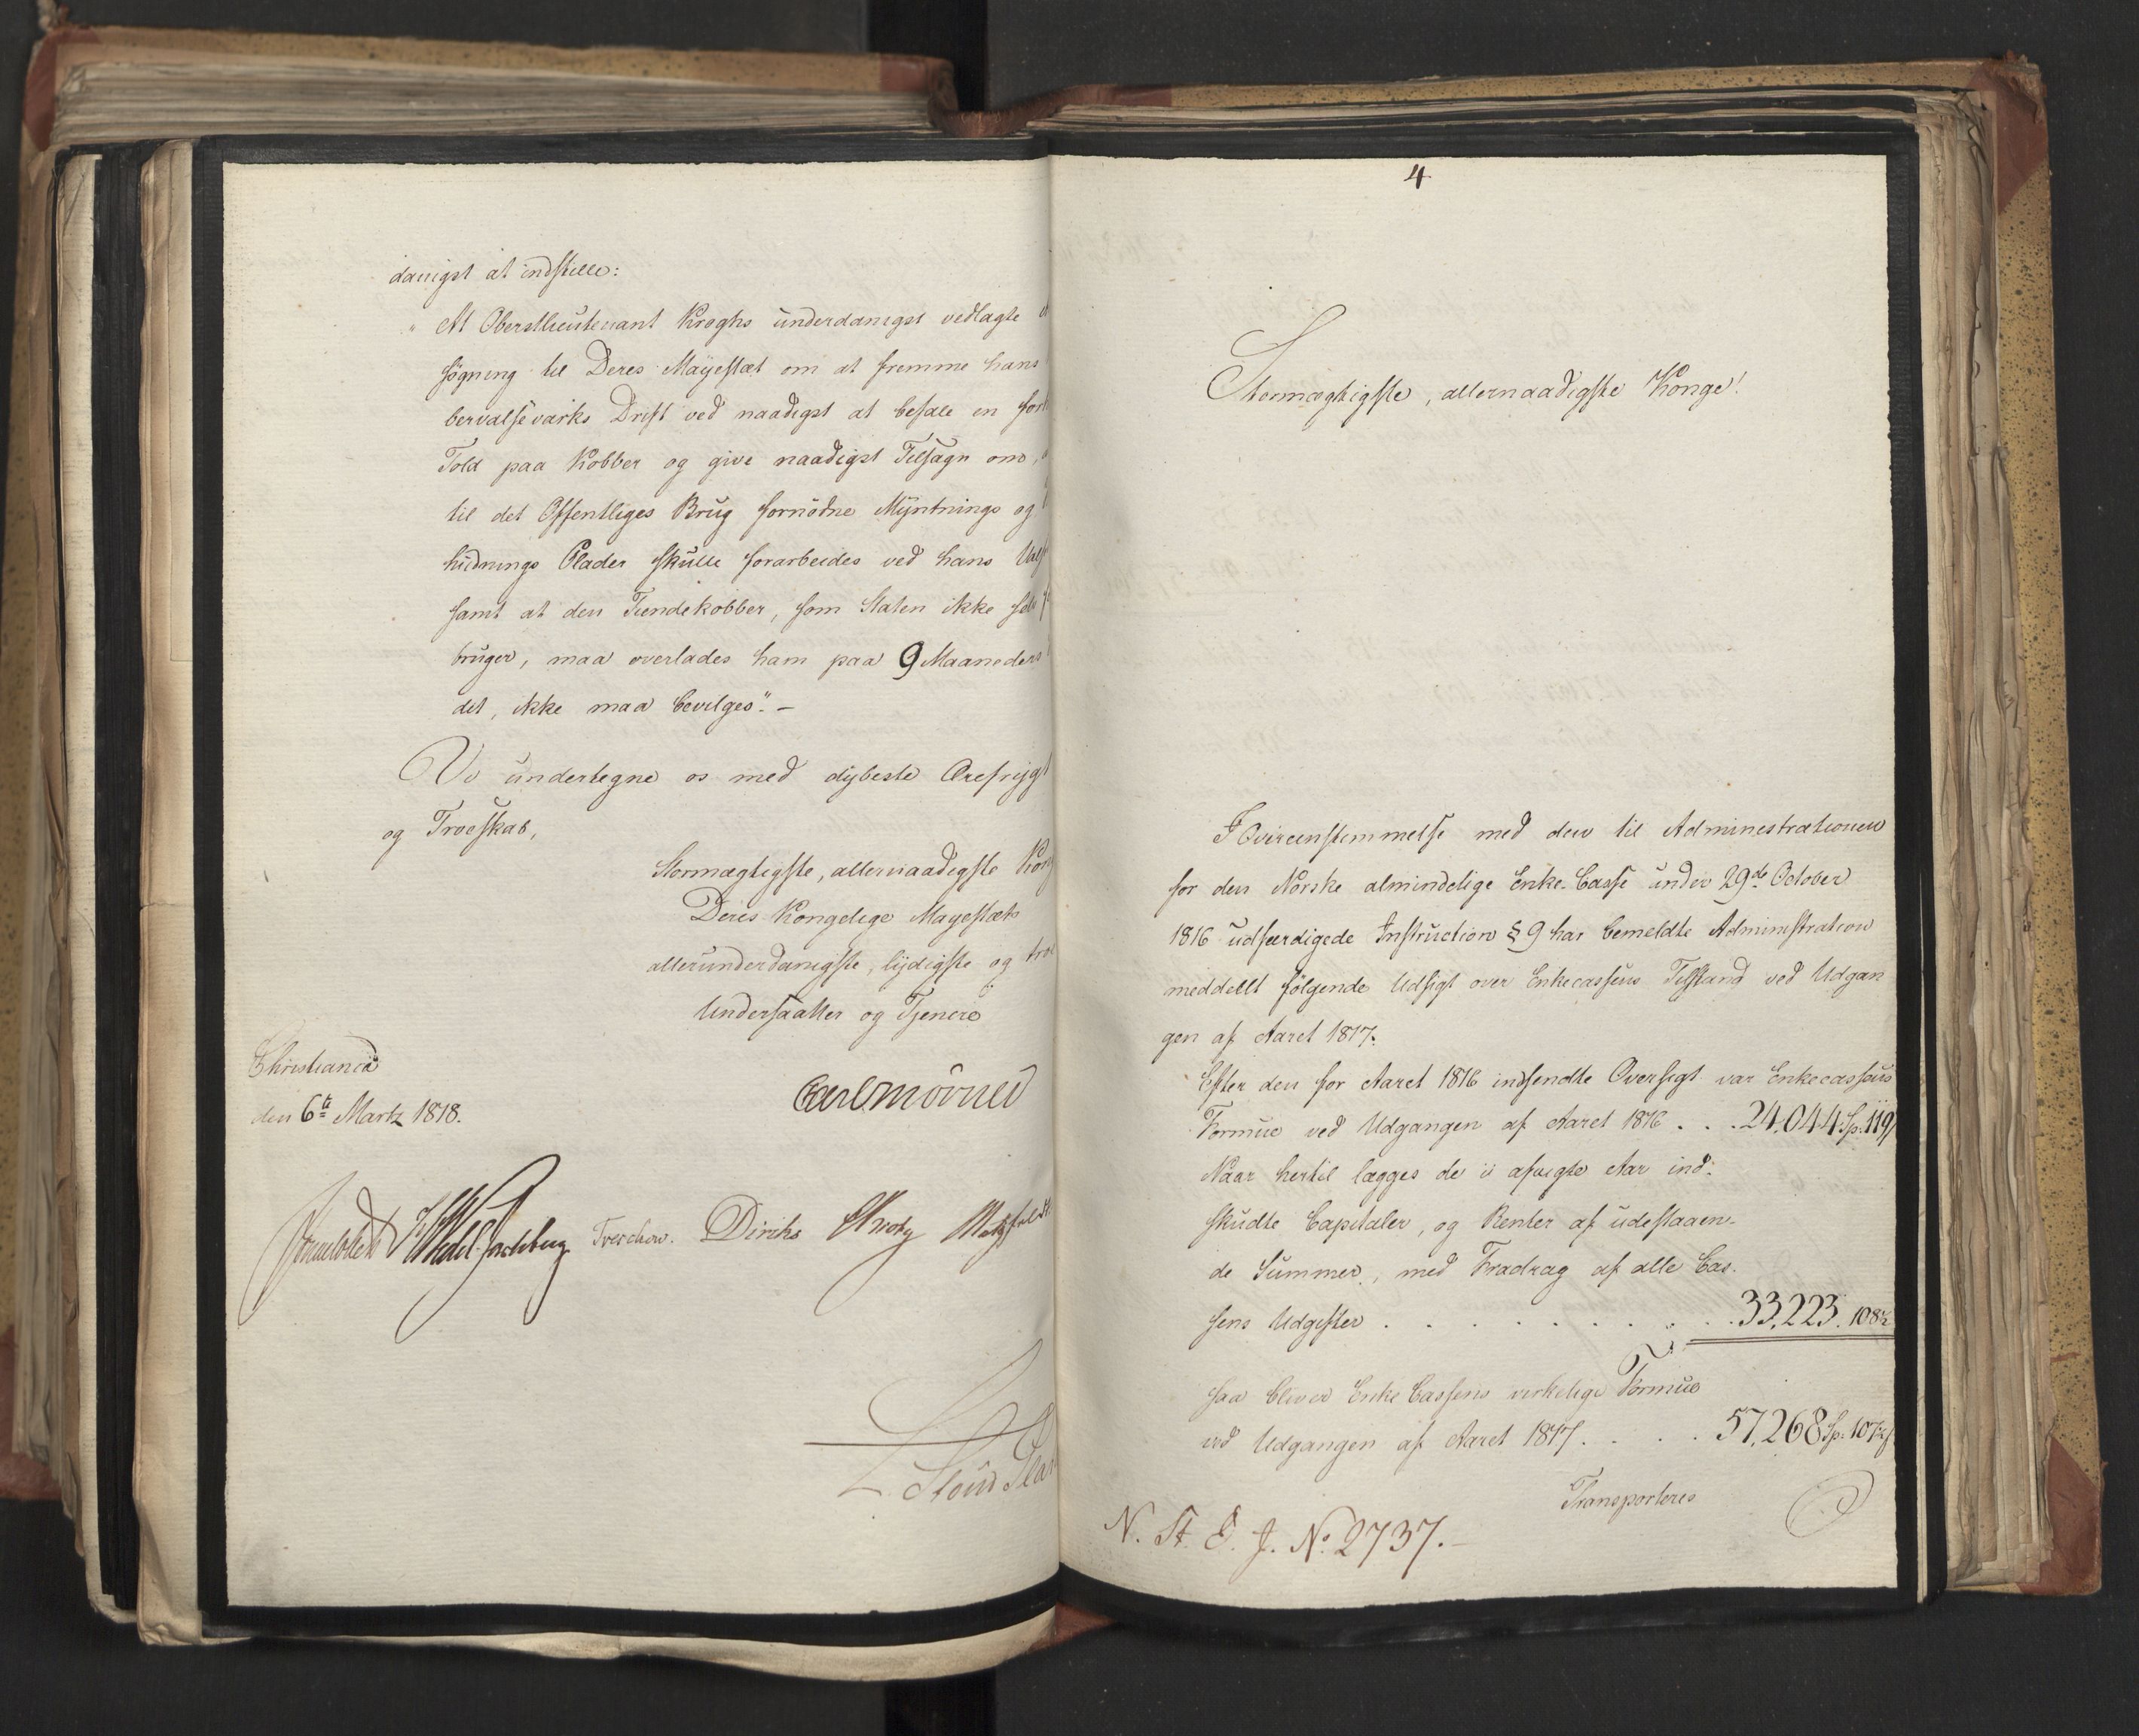 danigst at indstille:
"At Oberstlieutenant Kroghs underdanigst vedlagte
søgning til Deres Mayestæt om at fremme hans
bervalseværks Drift ved naadigst at befale en
Told paa Kobber og give naadigst Tilsagn om,
til det Offentliges Brug fornödne Myntnings og
hudnings Plader skulle forarbeides ved hans
samt at den Tiendekobber, som Staten ikke selv
bruger, maa overlades ham paa 9 Maaneders
det, ikke maa bevilges". -
Vi undertegne os med dybeste Ærefrygt
og Troeskab,
Stormægtigste, allernaadigste
Deres Kongelige Mayestæts
allerunderdanigste, lydigste og
Undersaatter og Tjenere
Christiania
den 6te Martz 1818.
Carl Mörner
Sommerhielm Wedel Jarlsberg Treschow. Diriks Krohg Motzfeldt
4
Stormægtigste, allernaadigste Konge!
I Overeenstemmelse med den til Administrationen
for den Norske almindelige Enke-Casse under 29de October
1816 udfærdigede Instruction § 9 har bemeldte Administration
meddellt følgende Udsigt over Enkecassens Tilstand ved Udgan
gen af Aaret 1817.
Efter den for Aaret 1816 indsendte Oversigt var Enkecassens
Formue ved Udgangen af Aaret 1816 . . . 24,044 Sp. 119
Naar hertil lægges de i afvigte Aar ind-
skudte Capitaler, og Renter af udestaaen-
de Summer, med Fradrag af alle Cas-
sens Udgifter . . . . . . . . . 33,223. 108
saa bliver Enke Cassens virkelige Formue
ved Udgangen af Aaret 1817. . . . 57,268 Sp. 107
Transporteres
N. St. E. J. No 2737. -